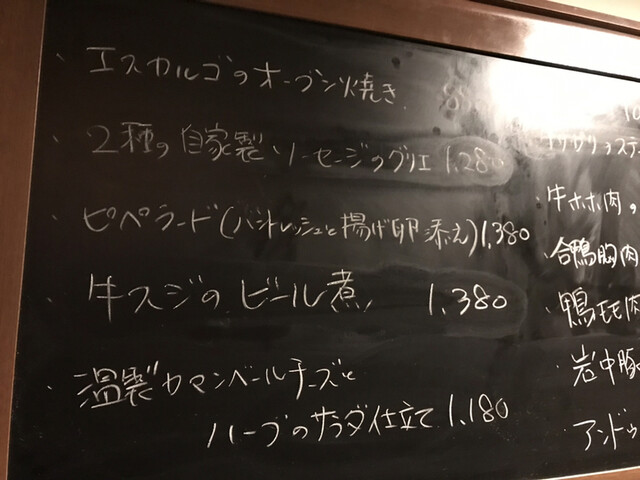 ・エスカルゴのオーブン焼き
・2種の自家製ソーセージのグリエ 1,280
・ピペラード(バントレッシュと揚げ卵添え)1,380
・牛スジのビール煮 1,380
・温製カマンベールチーズと
ハーブのサラダ仕立て 1,180
・牛ホホ肉
・合鴨胸肉
・鴨モモ肉
・岩中豚
・アンドゥ